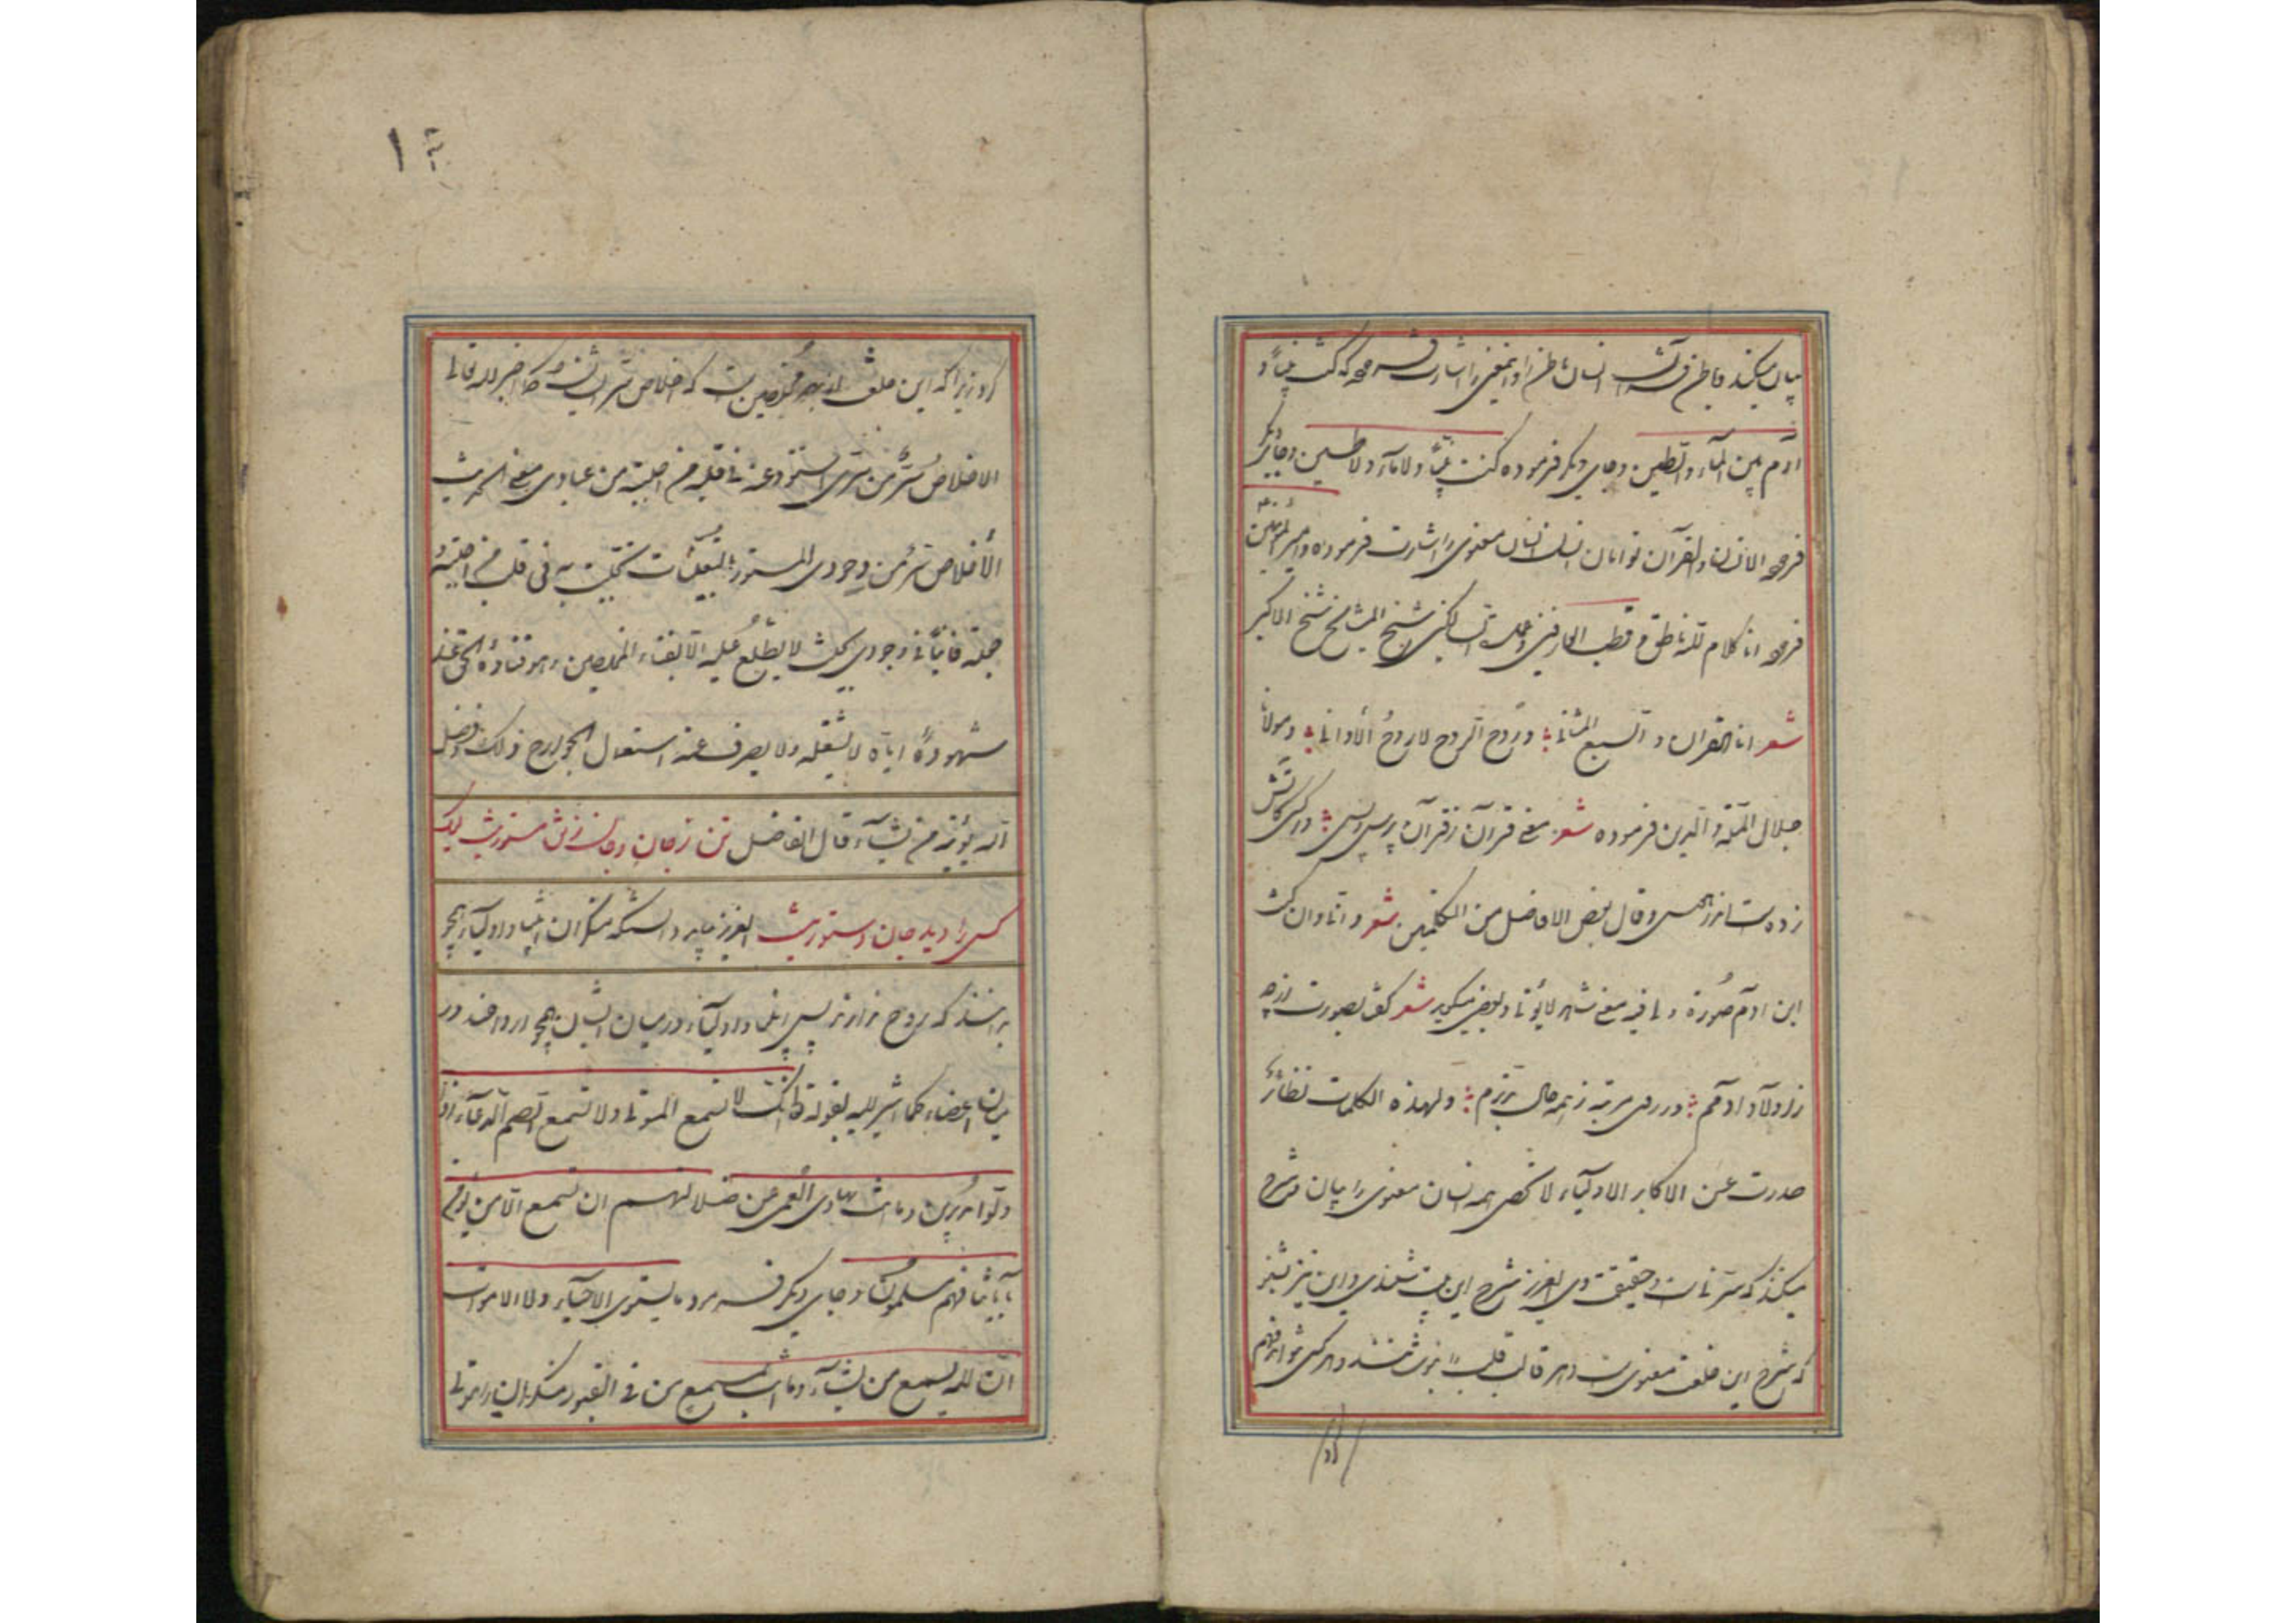 بیان میکند باطن قرآنست انسان باطن را و این معنی را اشارت فرموده که کنت نبیاً و
آدم بین المآء والطین وجای دیگر فرموده کنت نبیّاً ولا مآء ولا طین وجای دیگر
فرموده الانسان والقرآن توأمان انسان معنوی را اشارت فرموده وامیر المؤمنین
فرموده انا کلام الله ناطق و قطب العارفین شیخ المشایخ شیخ الاکبر
شعر انا القرآن و السبع المثانی و روح الروح لا روح الأوانی و مولانا
جلال الملّة والدین فرموده شعر معنی قرآن ز قرآن پرس وبس ور کسی کاتش
زده ست اندر هوس وقال بعض الافاضل من المتکلمین شعر و انی وان کنت
ابن آدم صُورة و لی فیه معنی شاهد لابوتی وبعضی میگوید شعر گفتا بصورت ارچه
ز اولاد آدمم در روی مرتبه ز همه حال برترم ولهذه الکلمات نظائر
صدرت عن الاکابر الاولیآء لا تحصی همه انسان معنوی را بیان و شرح
میکند که سرّ ذات وحقیقت وی ای عزیز شرح این بیت شنیدی و این نیز بشنو
که شرح این خلقت معنوی است و هر قالب قلب و هر کسی نتواند فهم
کرد
۱۴
کرد زیرا که این خلقت از بهر مخلصین است که اخلاص سرّ ایشانست کما اخبر الله تعالی
الاخلاص سرّ من سرّی استودعته فی قلب من احببته من عبادی معنی الحدیث
الأخلاص سرّ من وجودی المستور بالتعیّنات تجلّیت به فی قلب من احببته
جعلته فانیاً فی وجودی بحیث لا یطّلع علیه الا بفناء المخلصین وهو فناؤه الحق عند
شهوده ایّاه لا یشغله ولا یصرف عنه استعمال الجوارح ذلک فضل
الله یؤتیه من یشآء قال الفاضل تن ز جان و جان ز تن مستور نیست لیک
کس را دید جان دستور نیست ای عزیز باید دانست که منکران انبیا و اولیآء همچو
بر انند که روح ندارند پس انبیا و اولیآء در میان ایشان همچو ارواحند در
میان اعضاء کما اشیر الیه بقوله تعالی انک لا تسمع الموتی ولا تسمع الصم الدعآء اذا
ولّوا مدبرین وما انت بهادی العمی عن ضلالتهم ان تسمع الا من یؤمن
بآیاتنا فهم مسلمون وجای دیگر فرمود وما یستوی الاحیآء ولا الاموات
انّ الله یسمع من یشآء وما انت بمسمع من فی القبور منکران را موتی